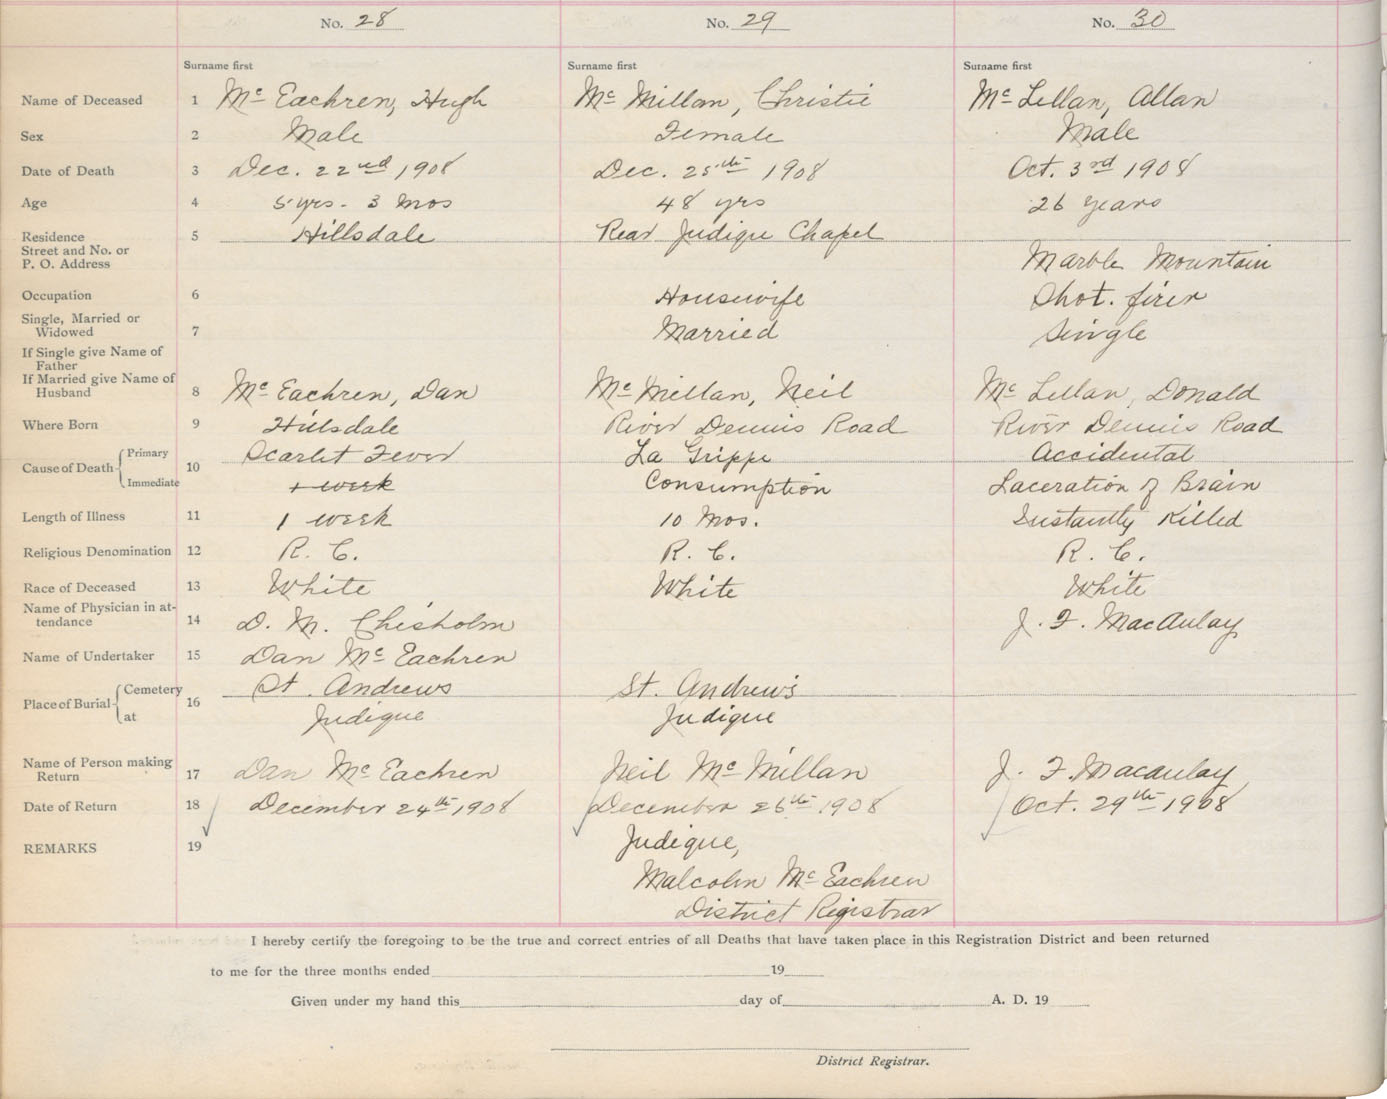 No. 28 No. 29 No. 30
Surname first Surname first Surname first
Name of Deceased 1 Mc Eachren, Hugh Mc Millan, Christie Mc Lellan, Allan
Sex 2 Male Female Male
Date of Death 3 Dec. 22nd 1908 Dec. 25th 1908 Oct. 3rd 1908
Age 4 5 yrs - 3 mos 48 yrs 26 years
Residence 5 Hillsdale Rear Judique Chapel
Street and No. or
P. O. Address Marble Mountain
Occupation 6 Housewife Shot. firer
Single, Married or
Widowed 7 Married Single
If Single give Name of
Father
If Married give Name of
Husband 8 Mc Eachren, Dan Mc Millan, Neil Mc Lellan, Donald
Where Born 9 Hillsdale River Dennis Road River Dennis Road
Cause of Death Primary 10 Scarlet Fever La Grippe Accidental
Immediate 1 week Consumption Laceration of Brain
Length of Illness 11 1 week 10 Mos. Instantly Killed
Religious Denomination 12 R. C. R. C. R. C.
Race of Deceased 13 White White White
Name of Physician in at-
tendance 14 D. M. Chisholm J. F. MacAulay
Name of Undertaker 15 Dan Mc Eachren
Place of Burial Cemetery 16 St. Andrews St. Andrew's
at Judique Judique
Name of Person making
Return 17 Dan Mc Eachren Neil Mc Millan J. F. Macaulay
Date of Return 18 December 24th 1908 December 26th 1908 Oct. 29th 1908
REMARKS 19 Judique,
Malcolm Mc Eachren
District Registrar
I hereby certify the foregoing to be the true and correct entries of all Deaths that have taken place in this Registration District and been returned
to me for the three months ended 19
Given under my hand this day of A. D. 19
District Registrar.